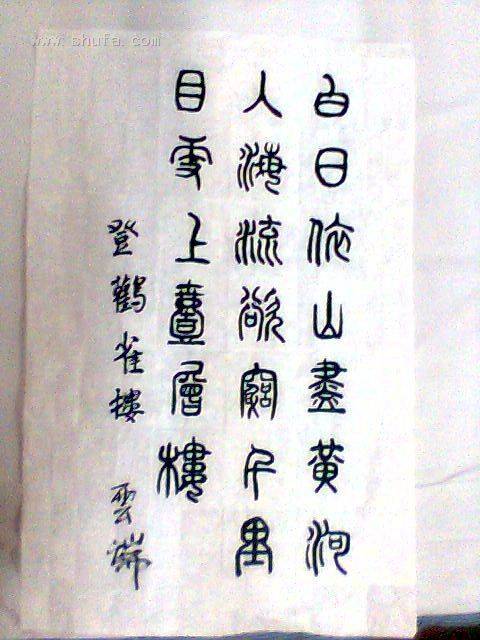 www.shufa.com
白日依山盡黃河
入海流欲窮千里
目更上壹層樓
登鸛雀樓 雲端